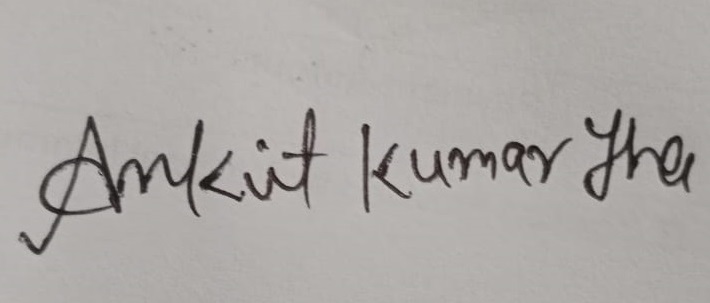 Ankit Kumar Jha